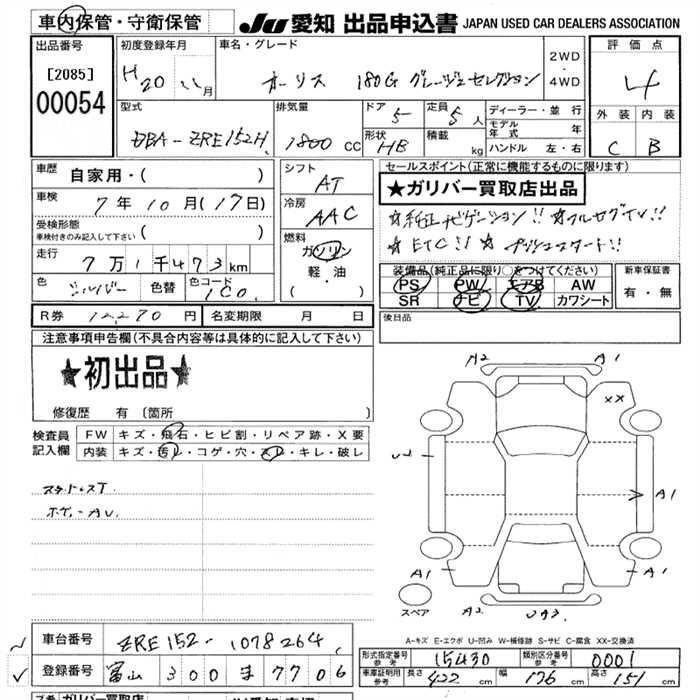 車内保管・守衛保管 JU 愛知 出品申込書 JAPAN USED CAR DEALERS ASSOCIATION
出品番号 初度登録年月 車名・グレード 2WD・4WD 評価点
[2085] H 20 11月 オーリス 180G グレージュセレクション 4
00054
型式 排気量 ドア 5 定員 5人 ディーラー・並行 外装 内装
DBA-ZRE152H 1800 CC 形状 HB 積載 kg モデル年式 年 C B
ハンドル 左・右
車歴 自家用・( ) シフト AT セールスポイント(正常に機能するものに限ります)
車検 7年10月(17日) 冷房 AAC ★ガリバー買取店出品
受検形態 ( ) ☆純正ナビゲーション!! ☆フルセグTV!!
車検付きのみ記入して下さい
走行 7万1千473km 燃料 ガソリン ☆ETC!! ☆プッシュスタート!!
色 シルバー 色替 色コード 1C0 軽・油 ( ・ )
装備品(純正品に限り○をつけてください) 新車保証書
PS PW エアB AW 有・無
SR ナビ TV カワシート
R券 12,270円 名変期限 月 日 後日品
注意事項申告欄(不具合内容等は具体的に記入して下さい)
★初出品★
修復歴 有 (箇所 )
検査員記入欄 FW キズ・飛石・ヒビ割・リペア跡・X要
内装 キズ・汚レ・コゲ・穴・スレ・キレ・破レ
A2 A1
XX
A1
A1 A1
スペア A2
A-キズ E-エクボ U-凹み W-補修跡 S-サビ C-腐食 XX-交換済
車台番号 ZRE152-1078264
型式指定番号 参考 15430 類別区分番号 参考 0001
登録番号 富山 300 す 7706
車庫証明用 参考 長さ 422 cm 幅 176 cm 高さ 151 cm
ガリバー買取店